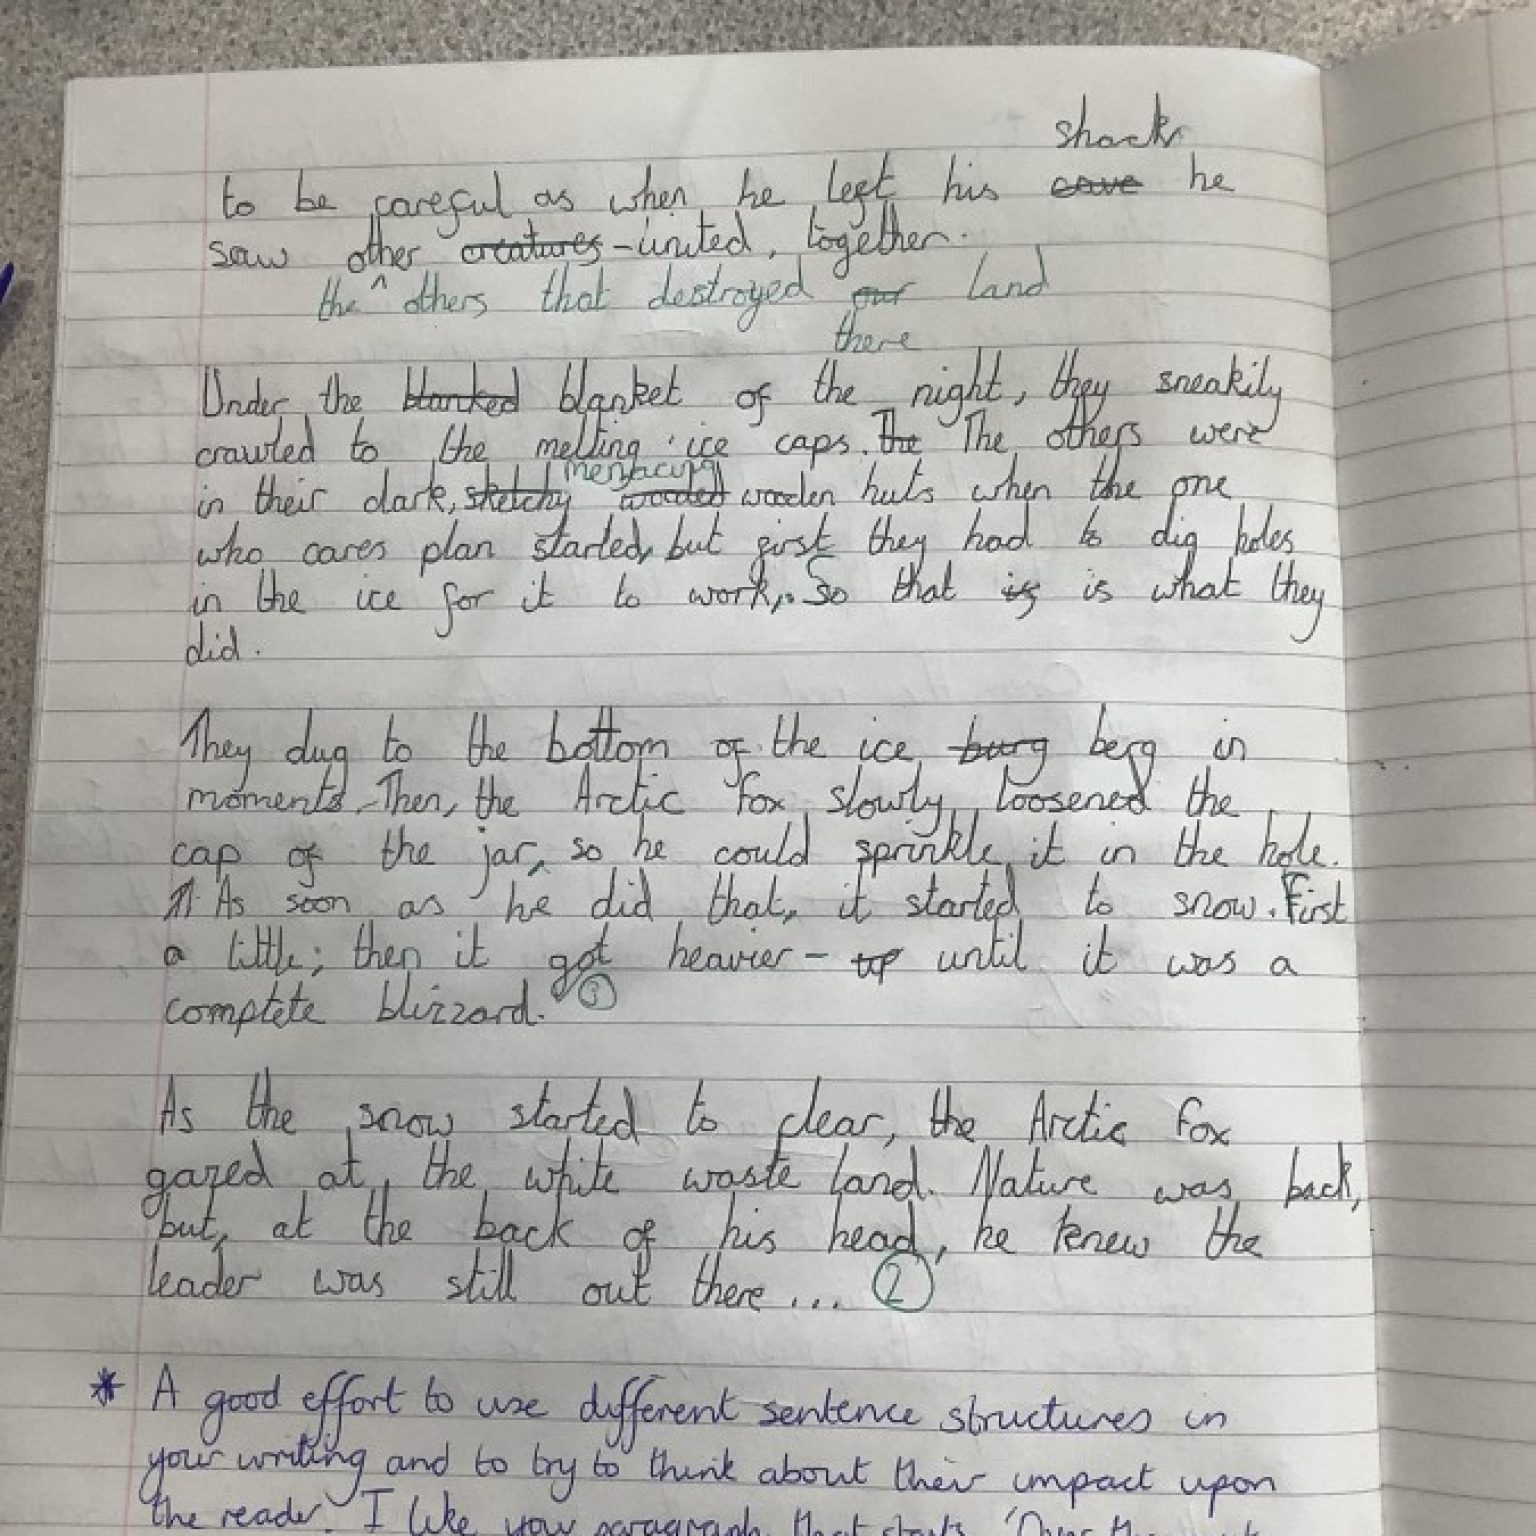 shack
to be careful as when he left his cave he
saw other creatures - united, together.
the ^ others that destroyed our land
there
Under the blanked blanket of the night, they sneakily
crawled to the melting ice caps. The The others were
menacing
in their dark, sketchy wooded wooden huts when the one
who cares plan started, but first they had to dig holes
in the ice for it to work,. So that is is what they
did.
They dug to the bottom of the ice burg berg in
moments. Then, the Arctic Fox slowly loosened the
cap of the jar, so he could sprinkle it in the hole.
As soon as he did that, it started to snow. First
a little; then it got heavier - until it was a
complete blizzard. 3
As the snow started to clear, the Arctic Fox
gazed at the white waste land. Nature was back,
but, at the back of his head, he knew the
leader was still out there... 2
* A good effort to use different sentence structures in
your writing and to try to think about their impact upon
the reader. I like your paragraph that starts